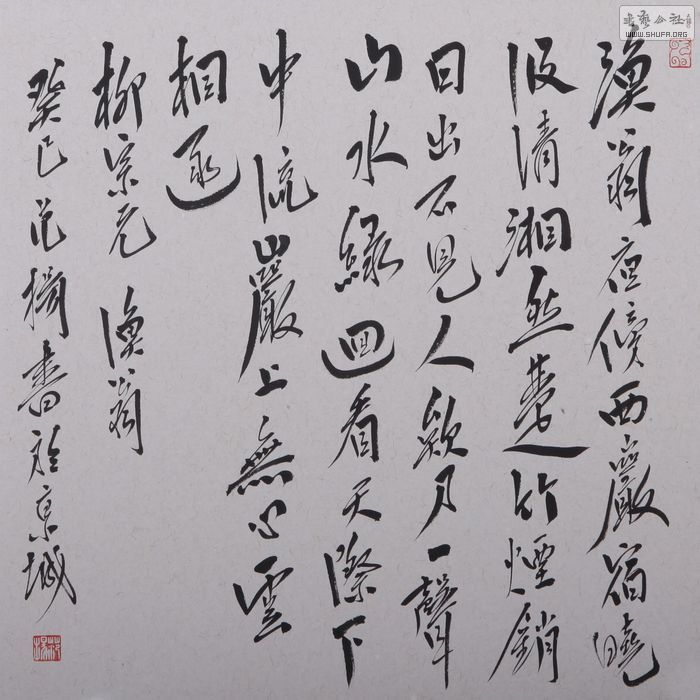 漁翁夜傍西巖宿曉
汲清湘然楚竹煙銷
日出不見人欸乃一聲
山水綠迴看天際下
中流巖上無心雲
相逐
柳宗元 漁翁
癸巳范揚書於京城
書藝公社
WWW.SHUFA.ORG